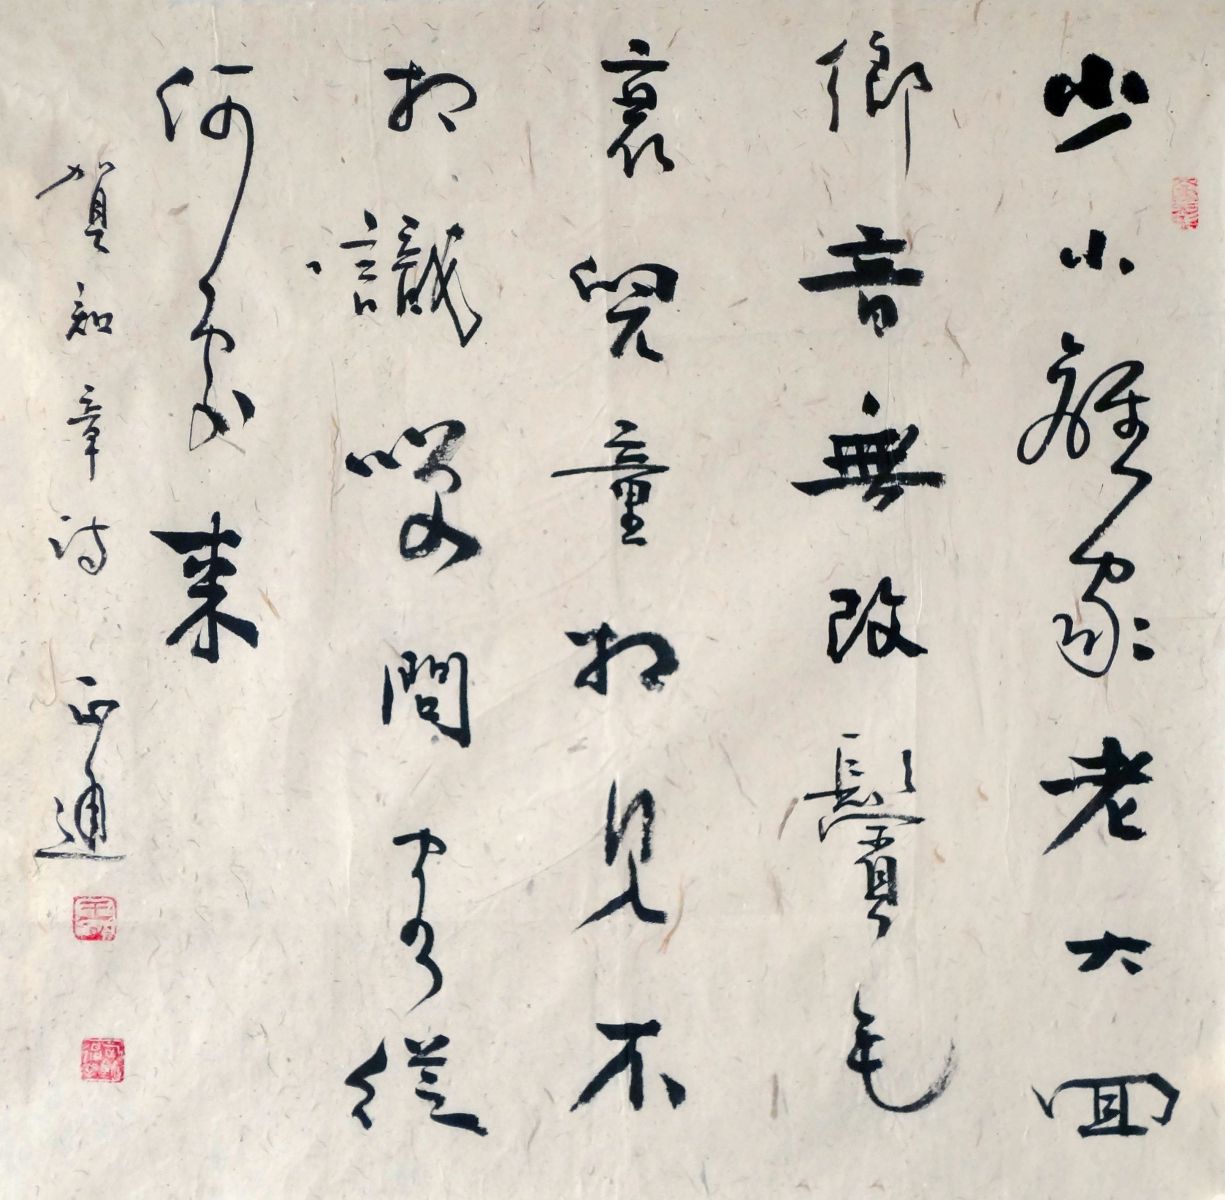 少小離家老大回
鄉音無改鬢毛
衰兒童相見不
相識笑問客從
何處來
賀知章詩 正通